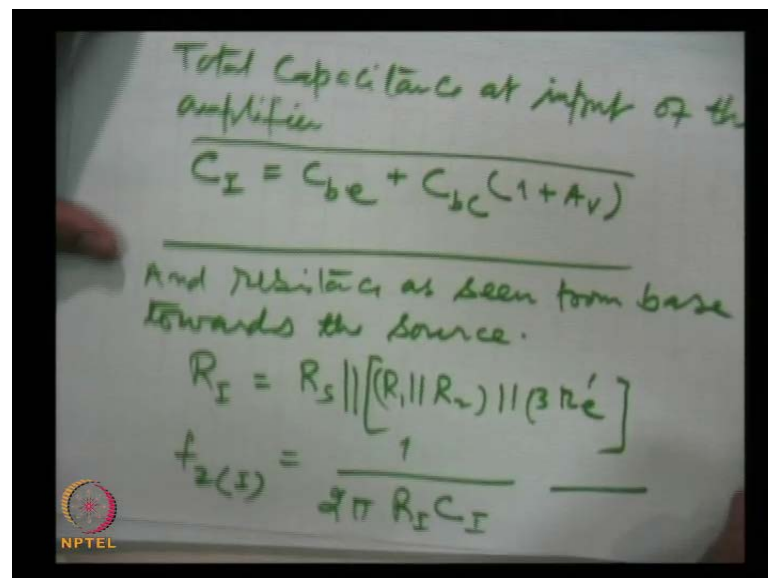 Total Capacitance at input of the
amplifier
C_I = C_be + C_bc (1 + A_V)
And resistance as seen from base
towards the source.
R_I = R_S || [(R_1 || R_2) || β r_e']
f_2(I) = 1 / 2π R_I C_I
NPTEL